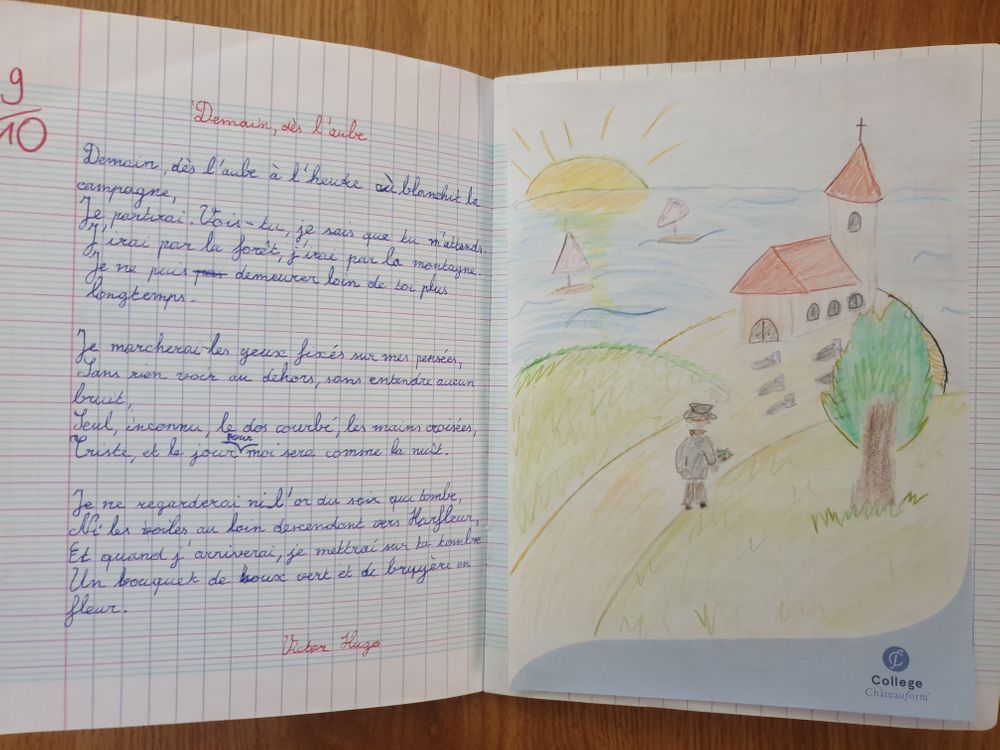 9
10
Demain, dès l'aube
Demain, dès l'aube à l'heure où blanchit la
campagne,
Je partirai. Vois-tu, je sais que tu m'attends.
J'irai par la forêt, j'irai par la montagne.
Je ne puis pas demeurer loin de toi plus
longtemps.
Je marcherai les yeux fixés sur mes pensées,
Sans rien voir au dehors, sans entendre aucun
bruit,
Seul, inconnu, le dos courbé, les mains croisées,
Triste, et le jour pour moi sera comme la nuit.
Je ne regarderai ni l'or du soir qui tombe,
Ni les voiles au loin descendant vers Harfleur,
Et quand j'arriverai, je mettrai sur ta tombe
Un bouquet de houx vert et de bruyère en
fleur.
Victor Hugo
College
Châteauform'